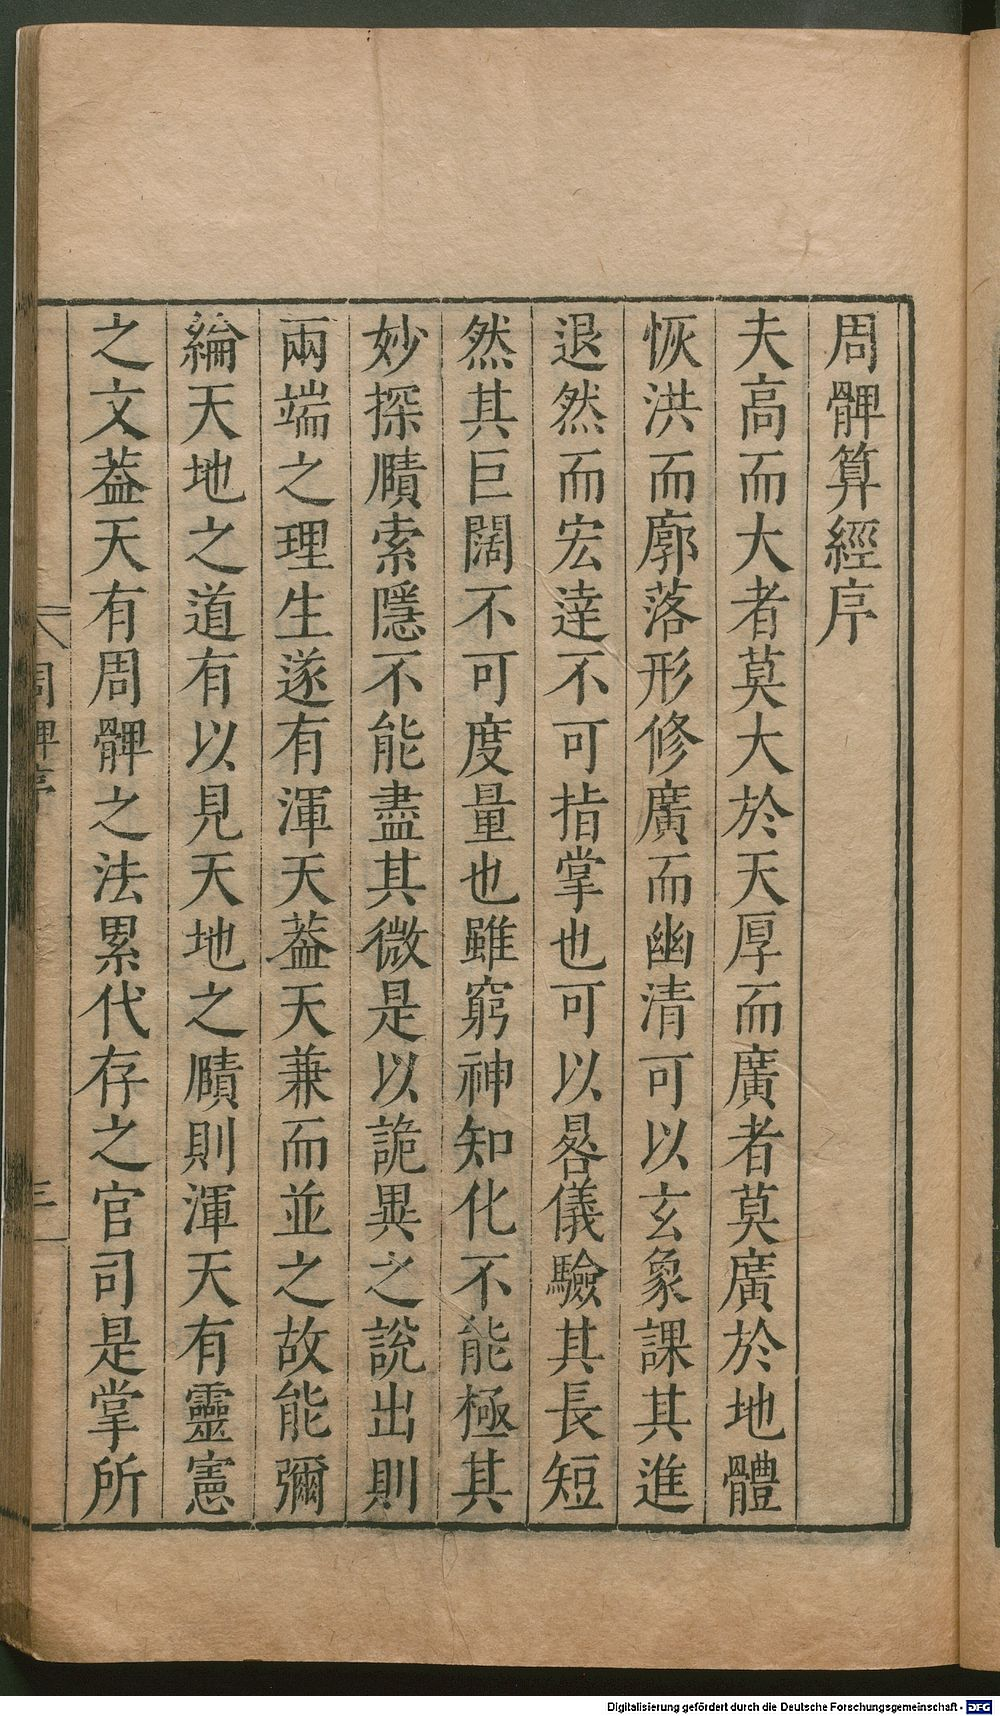 周髀算經序
夫高而大者莫大於天厚而廣者莫廣於地體
恢洪而廓落形修廣而幽清可以玄象課其進
退然而宏達不可指掌也可以晷儀驗其長短
然其巨闊不可度量也雖窮神知化不能極其
妙探賾索隱不能盡其微是以詭異之說出則
兩端之理生遂有渾天葢天兼而並之故能彌
綸天地之道有以見天地之賾則渾天有靈憲
之文葢天有周髀之法累代存之官司是掌所
周髀序
三
Digitalisierung gefördert durch die Deutsche Forschungsgemeinschaft - DFG